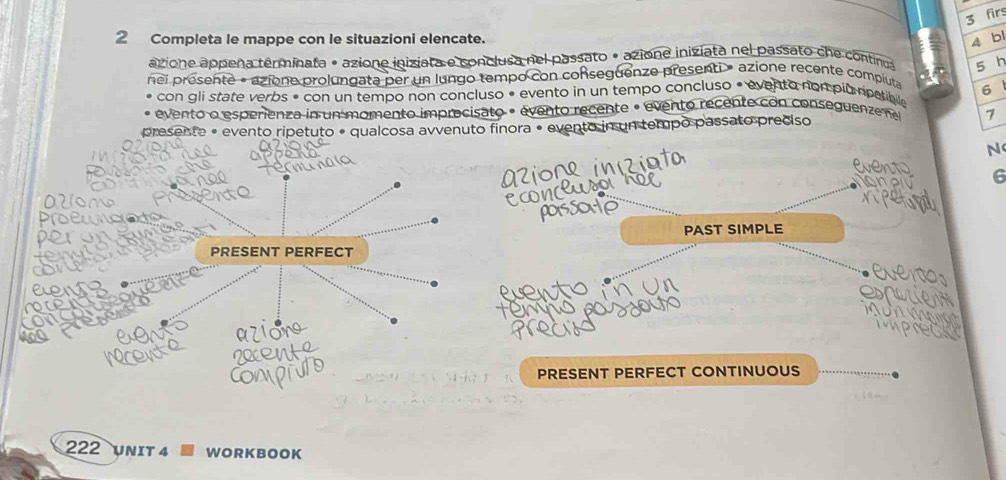 2 Completa le mappe con le situazioni elencate.
azione appena terminata • azione iniziata e conclusa nel passato • azione iniziata nel passato che continua
nel presente • azione prolungata per un lungo tempo con conseguenze presenti • azione recente compiuta
• con gli state verbs • con un tempo non concluso • evento in un tempo concluso • evento non più ripetibile
• evento o esperienza in un momento imprecisato • evento recente • evento recente con conseguenze nel
presente • evento ripetuto • qualcosa avvenuto finora • evento in un tempo passato preciso
3 firs
4 bl
5 h
6
7
N
6
azione
iniziata nel
passato che
continua nel
presente
azione
appena
terminata
azione
prolungata
per un
PRESENT PERFECT
evento
recente
conseguente
nel presente
evento
recente
azione
recente
compiuto
azione iniziata
e conclusa nel
passato
evento
non più
PAST SIMPLE
evento in un
tempo passato
preciso
evento o
PRESENT PERFECT CONTINUOUS
222 UNIT 4 WORKBOOK